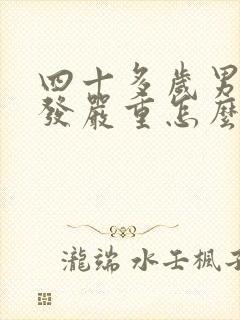 四十多歲男
發嚴重怎麼
瀧端 水壬楓子